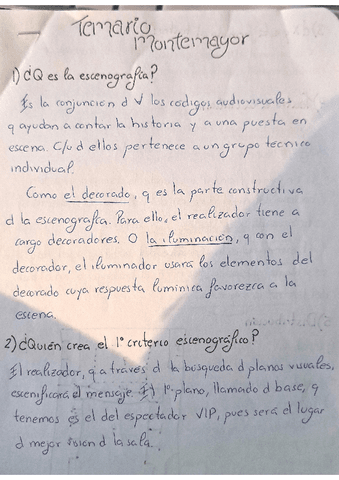 Temario
Montemayor
1) ¿Q es la escenografía?
Es la conjuncion d ∀ los codigos audiovisuales
q ayudan a contar la historia y a una puesta en
escena. C/u d ellos pertenece a un grupo tecnico
individual.
Como el decorado, q es la parte constructiva
d la escenografía. Para ello, el realizador tiene a
cargo decoradores. O la iluminación, q con el
decorador, el iluminador usará los elementos del
decorado cuya respuesta lumínica favorezca a la
escena.
2) ¿Quién crea el 1º criterio escenográfico?
El realizador, q a través d la búsqueda d planos visuales,
escenificará el mensaje. El 1º plano, llamado d base, q
tenemos es el del espectador VIP, pues será el lugar
d mejor vision d la sala.